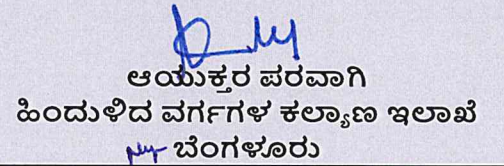 ಆಯುಕ್ತರ ಪರವಾಗಿ
ಹಿಂದುಳಿದ ವರ್ಗಗಳ ಕಲ್ಯಾಣ ಇಲಾಖೆ
ಬೆಂಗಳೂರು